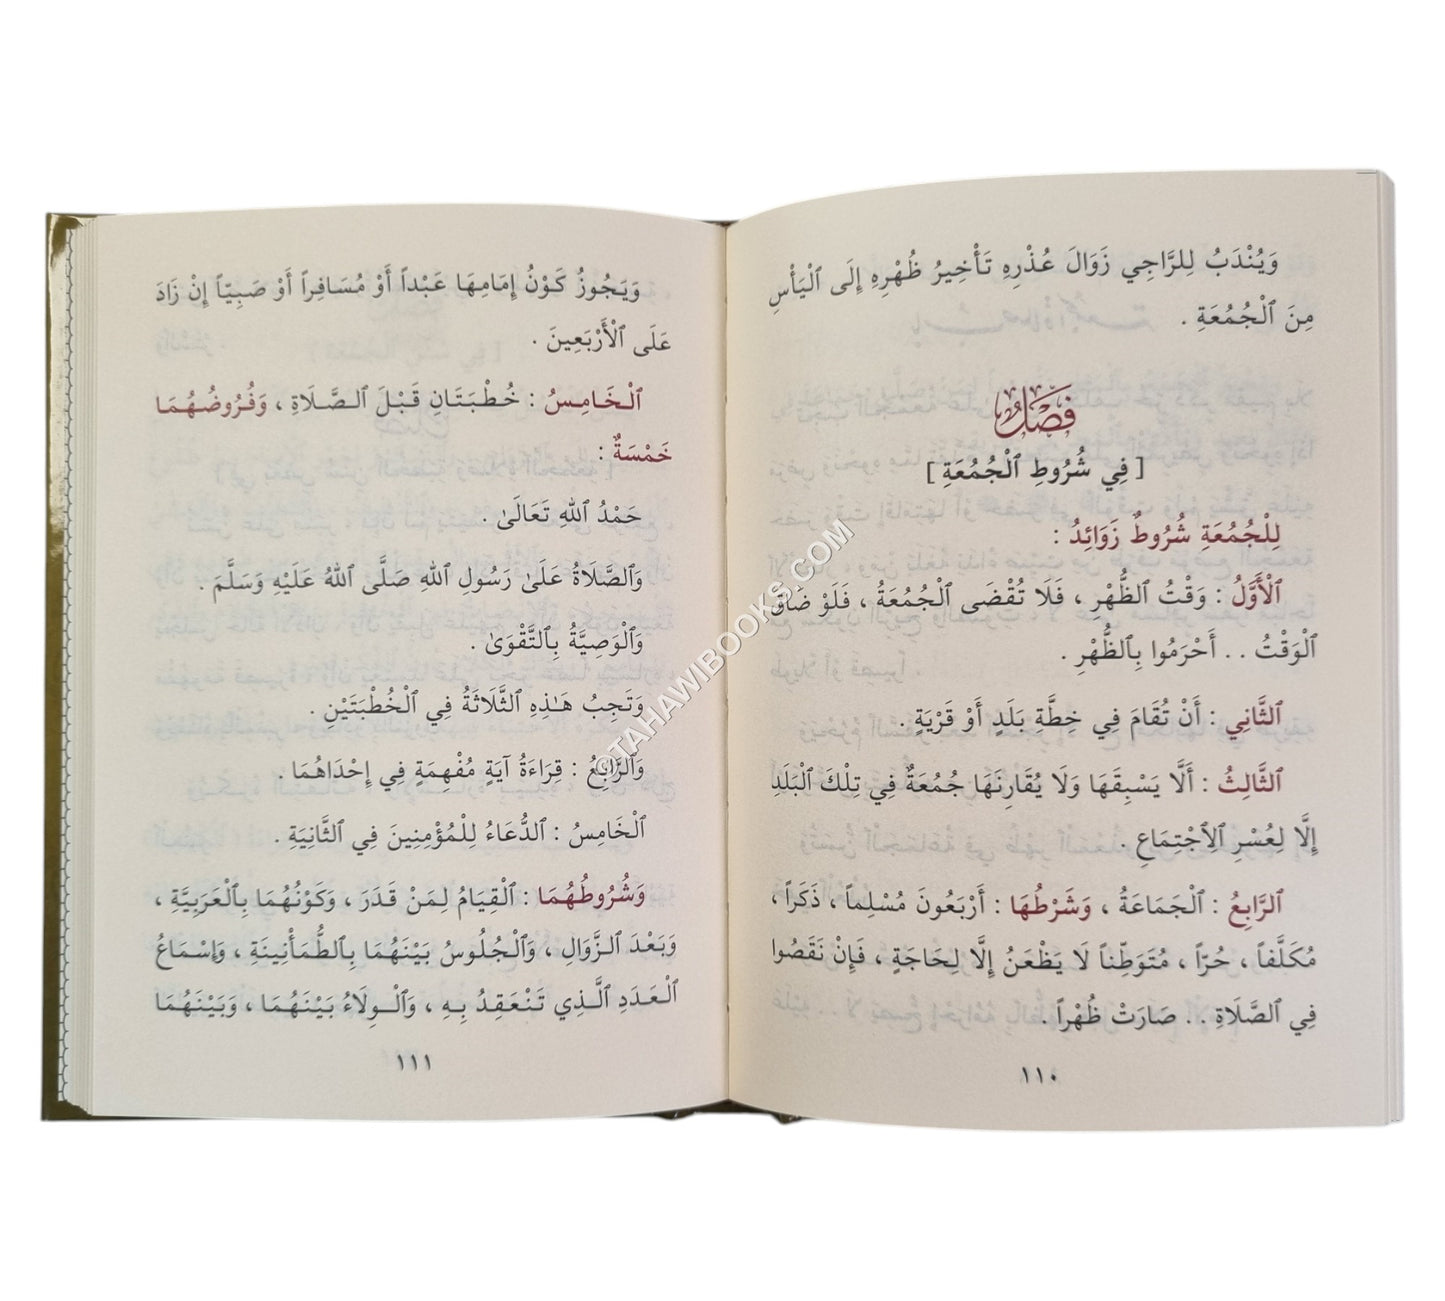 وَيُنْدَبُ لِلرَّاجِي زَوَالَ عُذْرِهِ تَأْخِيرُ ظُهْرِهِ إِلَى ٱلْيَأْسِ
مِنَ ٱلْجُمُعَةِ .
فَصْلٌ
[ فِي شُرُوطِ ٱلْجُمُعَةِ ]
لِلْجُمُعَةِ شُرُوطٌ زَوَائِدُ :
ٱلْأَوَّلُ : وَقْتُ ٱلظُّهْرِ ، فَلَا تُقْضَى ٱلْجُمُعَةُ ، فَلَوْ ضَاقَ
ٱلْوَقْتُ . . أَحْرَمُوا بِٱلظُّهْرِ .
ٱلثَّانِي : أَنْ تُقَامَ فِي خِطَّةِ بَلَدٍ أَوْ قَرْيَةٍ .
ٱلثَّالِثُ : أَلَّا يَسْبِقَهَا وَلَا يُقَارِنَهَا جُمُعَةٌ فِي تِلْكَ ٱلْبَلَدِ
إِلَّا لِعُسْرِ ٱلِٱجْتِمَاعِ .
ٱلرَّابِعُ : ٱلْجَمَاعَةُ ، وَشَرْطُهَا : أَرْبَعُونَ مُسْلِماً ، ذَكَراً ،
مُكَلَّفاً ، حُرّاً ، مُتَوَطِّناً لَا يَظْعَنُ إِلَّا لِحَاجَةٍ ، فَإِنْ نَقَصُوا
فِي ٱلصَّلَاةِ . . صَارَتْ ظُهْراً .
١١٠
وَيَجُوزُ كَوْنُ إِمَامِهَا عَبْداً أَوْ مُسَافِراً أَوْ صَبِيّاً إِنْ زَادَ
عَلَى ٱلْأَرْبَعِينَ .
ٱلْخَامِسُ : خُطْبَتَانِ قَبْلَ ٱلصَّلَاةِ ، وَفُرُوضُهُمَا
خَمْسَةٌ :
حَمْدُ ٱللهِ تَعَالَىٰ .
وَٱلصَّلَاةُ عَلَىٰ رَسُولِ ٱللهِ صَلَّى ٱللهُ عَلَيْهِ وَسَلَّمَ .
وَٱلْوَصِيَّةُ بِٱلتَّقْوَىٰ .
وَتَجِبُ هَـٰذِهِ ٱلثَّلَاثَةُ فِي ٱلْخُطْبَتَيْنِ .
وَٱلرَّابِعُ : قِرَاءَةُ آيَةٍ مُفْهِمَةٍ فِي إِحْدَاهُمَا .
ٱلْخَامِسُ : ٱلدُّعَاءُ لِلْمُؤْمِنِينَ فِي ٱلثَّانِيَةِ .
وَشُرُوطُهُمَا : ٱلْقِيَامُ لِمَنْ قَدَرَ ، وَكَوْنُهُمَا بِٱلْعَرَبِيَّةِ ،
وَبَعْدَ ٱلزَّوَالِ ، وَٱلْجُلُوسُ بَيْنَهُمَا بِٱلطُّمَأْنِينَةِ ، وَإِسْمَاعُ
ٱلْعَدَدِ ٱلَّذِي تَنْعَقِدُ بِهِ ، وَٱلْوِلَاءُ بَيْنَهُمَا ، وَبَيْنَهُمَا
١١١
©TAHAWIBOOKS.COM